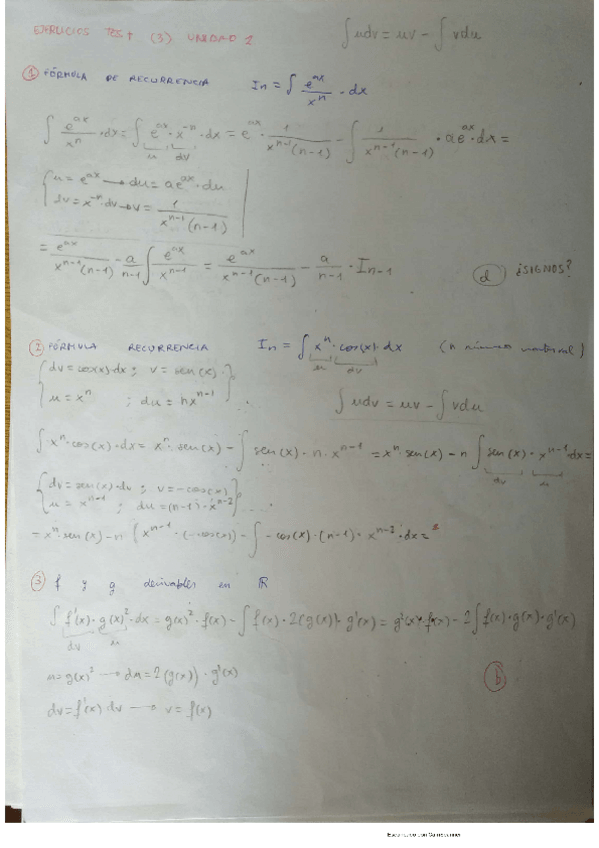 EJERCICIOS TEST (3) UNIDAD 2
∫udv = uv - ∫vdu
① FÓRMULA DE RECURRENCIA In = ∫ e^ax/x^n · dx
∫ e^ax/x^n · dx = ∫ e^ax · x^-n · dx = e^ax · 1/(x^(n-1)(n-1)) - ∫ 1/(x^(n-1)(n-1)) · ae^ax · dx =
u dv
u = e^ax → du = ae^ax · du
dv = x^-n · dv → v = 1/(x^(n-1)(n-1))
= e^ax/(x^(n-1)(n-1)) - a/(n-1) ∫ e^ax/x^(n-1) = e^ax/(x^(n-1)(n-1)) - a/(n-1) · In-1
d ¿SIGNOS?
② FÓRMULA RECURRENCIA In = ∫ x^n · cos(x) · dx (n número natural)
u dv
dv = cos(x) · dx ; v = sen(x)
u = x^n ; du = nx^(n-1)
∫udv = uv - ∫vdu
∫ x^n · cos(x) · dx = x^n · sen(x) - ∫ sen(x) · n · x^(n-1) = x^n · sen(x) - n ∫ sen(x) · x^(n-1) dx =
dv u
dv = sen(x) · dv ; v = -cos(x)
u = x^(n-1) ; du = (n-1) · x^(n-2)
= x^n · sen(x) - n (x^(n-1) · (-cos(x)) - ∫ -cos(x) · (n-1) · x^(n-2) · dx =
③ f y g derivables en ℝ
∫ f'(x) · g(x)^2 · dx = g(x)^2 · f(x) - ∫ f(x) · 2(g(x)) · g'(x) = g^2(x) · f(x) - 2∫ f(x) · g(x) · g'(x)
dv u
u = g(x)^2 → du = 2(g(x)) · g'(x)
b
dv = f'(x) dv → v = f(x)
Escaneado con CamScanner